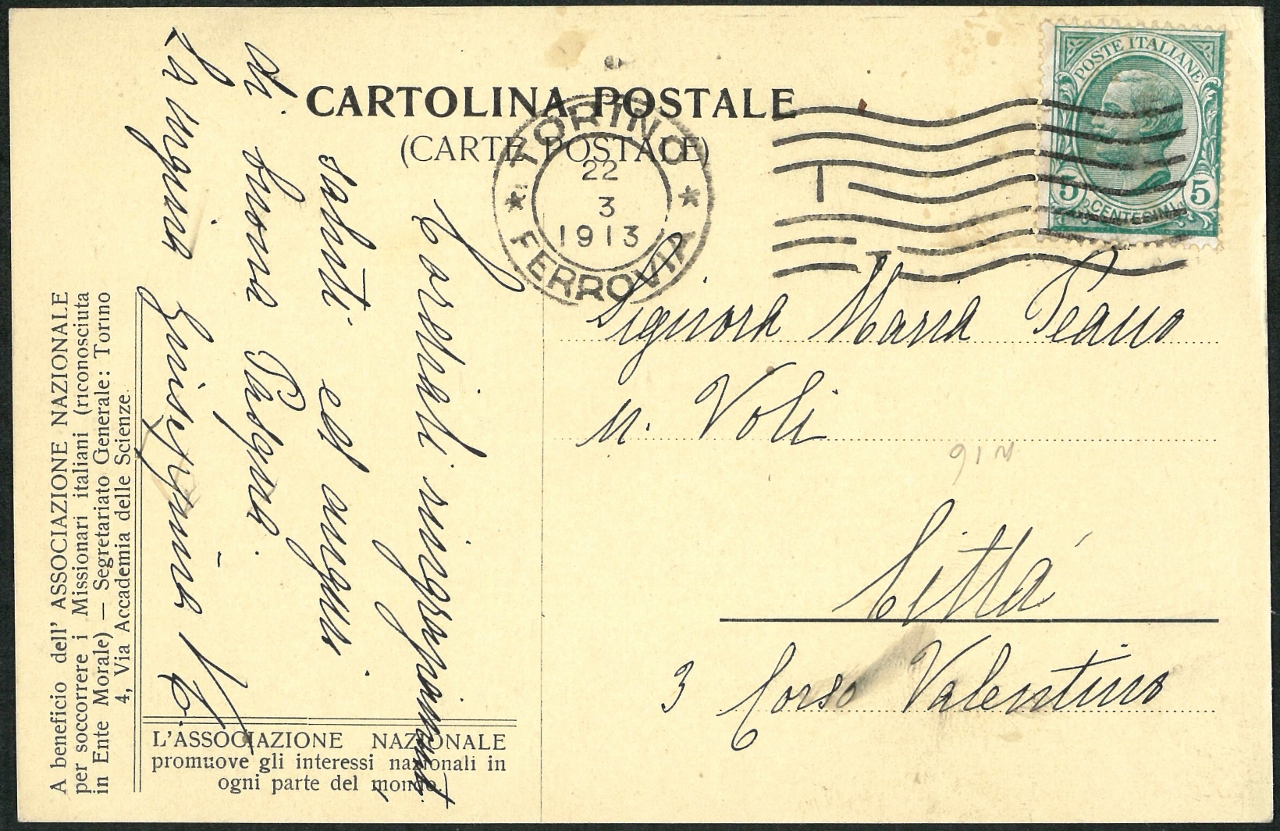 CARTOLINA POSTALE
(CARTE POSTALE)
TORINO
22
3
1913
FERROVIA
POSTE ITALIANE
5 CENTESIMI 5
Cordiali ringraziamenti,
saluti ed auguri
di buona Pasqua.
La cugina Giuseppina V.
Signora Maria Peano
n. Voli
Città
3 Corso Valentino
A beneficio dell' ASSOCIAZIONE NAZIONALE
per soccorrere i Missionari italiani (riconosciuta
in Ente Morale) — Segretariato Generale: Torino
4, Via Accademia delle Scienze.
L'ASSOCIAZIONE NAZIONALE
promuove gli interessi nazionali in
ogni parte del mondo.